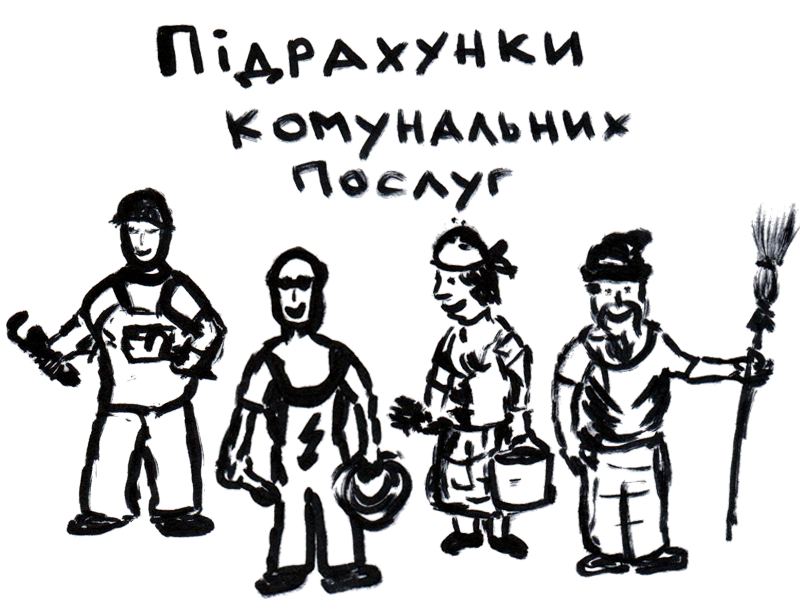 Підрахунки
комунальних
послуг